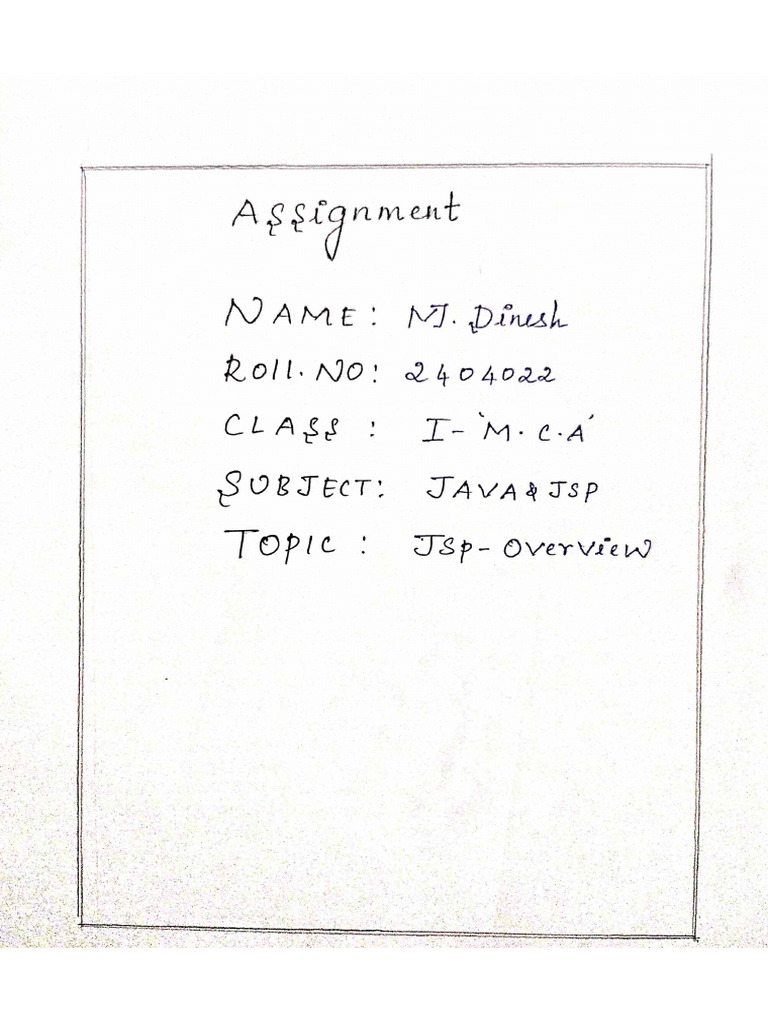 Assignment
NAME: M. Dinesh
ROll.NO: 2404022
CLASS : I-'M.C.A'
SUBJECT: JAVA & JSP
TOPIC : JSp-Overview